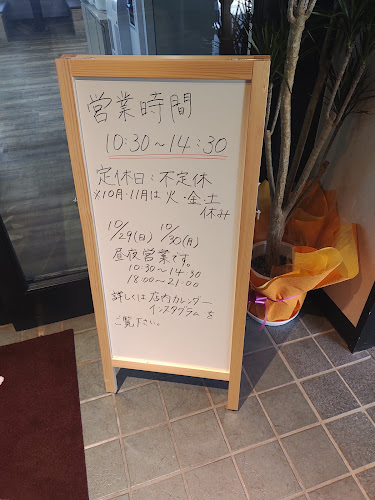 営業時間
10:30~14:30
定休日:不定休
※10月・11月は火・金・土
休み
10/29(日) 10/30(月)
昼夜営業です。
10:30~14:30
18:00~21:00
詳しくは店内カレンダー
インスタグラムを
ご覧下さい。